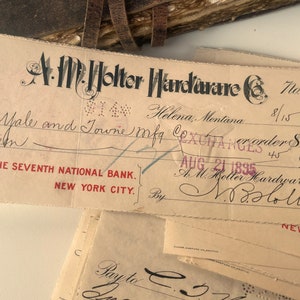 A. M. Holter Hardware Co.
$14
Helena, Montana 8/15
Yale and Towne Mfg Co or order
EXCHANGES
AUG 21 1895
45
THE SEVENTH NATIONAL BANK.
NEW YORK CITY.
A. M. Holter Hardware
By
NEW
Pay to